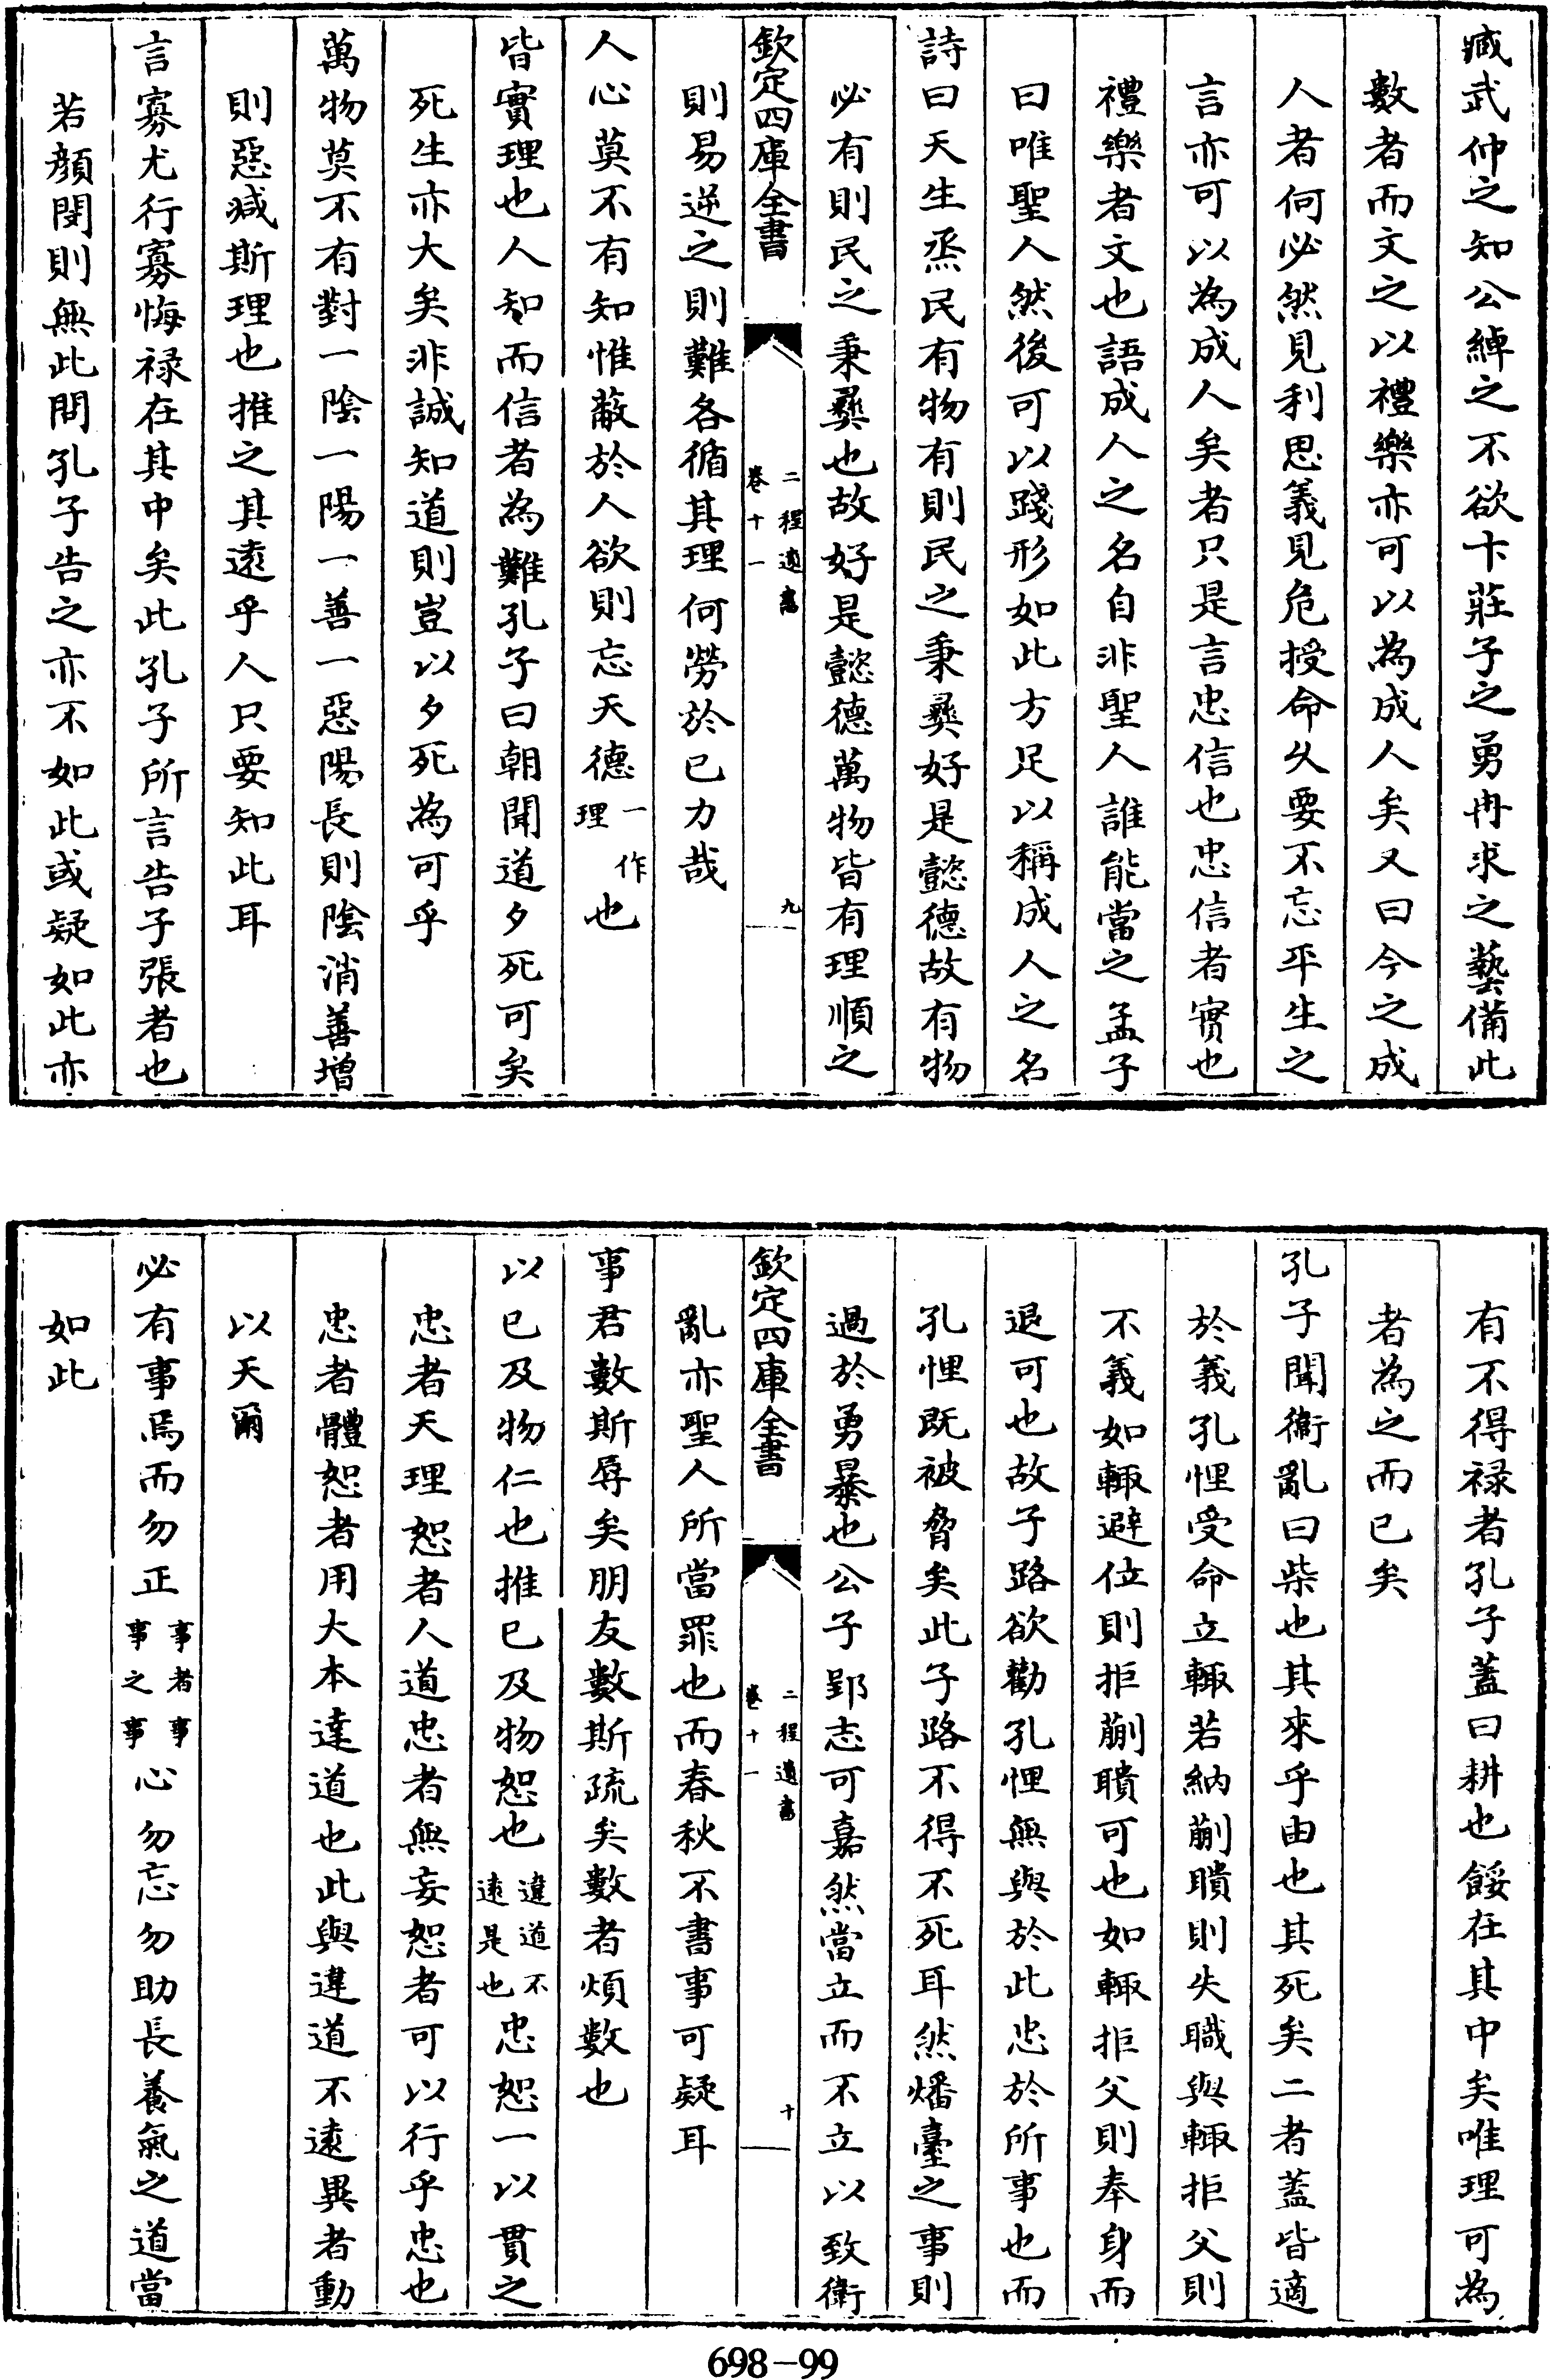 臧武仲之知公綽之不欲卞莊子之勇冉求之藝備此
數者而文之以禮樂亦可以為成人矣又曰今之成
人者何必然見利思義見危授命久要不忘平生之
言亦可以為成人矣者只是言忠信也忠信者實也
禮樂者文也語成人之名自非聖人誰能當之孟子
曰唯聖人然後可以踐形如此方足以稱成人之名
詩曰天生烝民有物有則民之秉彝好是懿德故有物
必有則民之秉彝也故好是懿德萬物皆有理順之
欽定四庫全書
二程遺書
卷十一
九
則易逆之則難各循其理何勞於已力哉
人心莫不有知惟蔽於人欲則忘天德一作理也
皆實理也人知而信者為難孔子曰朝聞道夕死可矣
死生亦大矣非誠知道則豈以夕死為可乎
萬物莫不有對一陰一陽一善一惡陽長則陰消善增
則惡減斯理也推之其遠乎人只要知此耳
言寡尤行寡悔禄在其中矣此孔子所言告子張者也
若顏閔則無此問孔子告之亦不如此或疑如此亦
有不得禄者孔子蓋曰耕也餒在其中矣唯理可為
者為之而已矣
孔子聞衞亂曰柴也其來乎由也其死矣二者蓋皆適
於義孔悝受命立輒若納蒯聵則失職與輒拒父則
不義如輒避位則拒蒯聵可也如輒拒父則奉身而
退可也故子路欲勸孔悝無與於此忠於所事也而
孔悝既被脅矣此子路不得不死耳然燔臺之事則
過於勇暴也公子郢志可嘉然當立而不立以致衛
欽定四庫全書
二程遺書
卷十一
十
亂亦聖人所當罪也而春秋不書事可疑耳
事君數斯辱矣朋友數斯疏矣數者煩數也
以已及物仁也推已及物恕也違道不遠是也忠恕一以貫之
忠者天理恕者人道忠者無妄恕者可以行乎忠也
忠者體恕者用大本達道也此與違道不遠異者動
以天爾
必有事焉而勿正事者事事之事心勿忘勿助長養氣之道當
如此
698-99